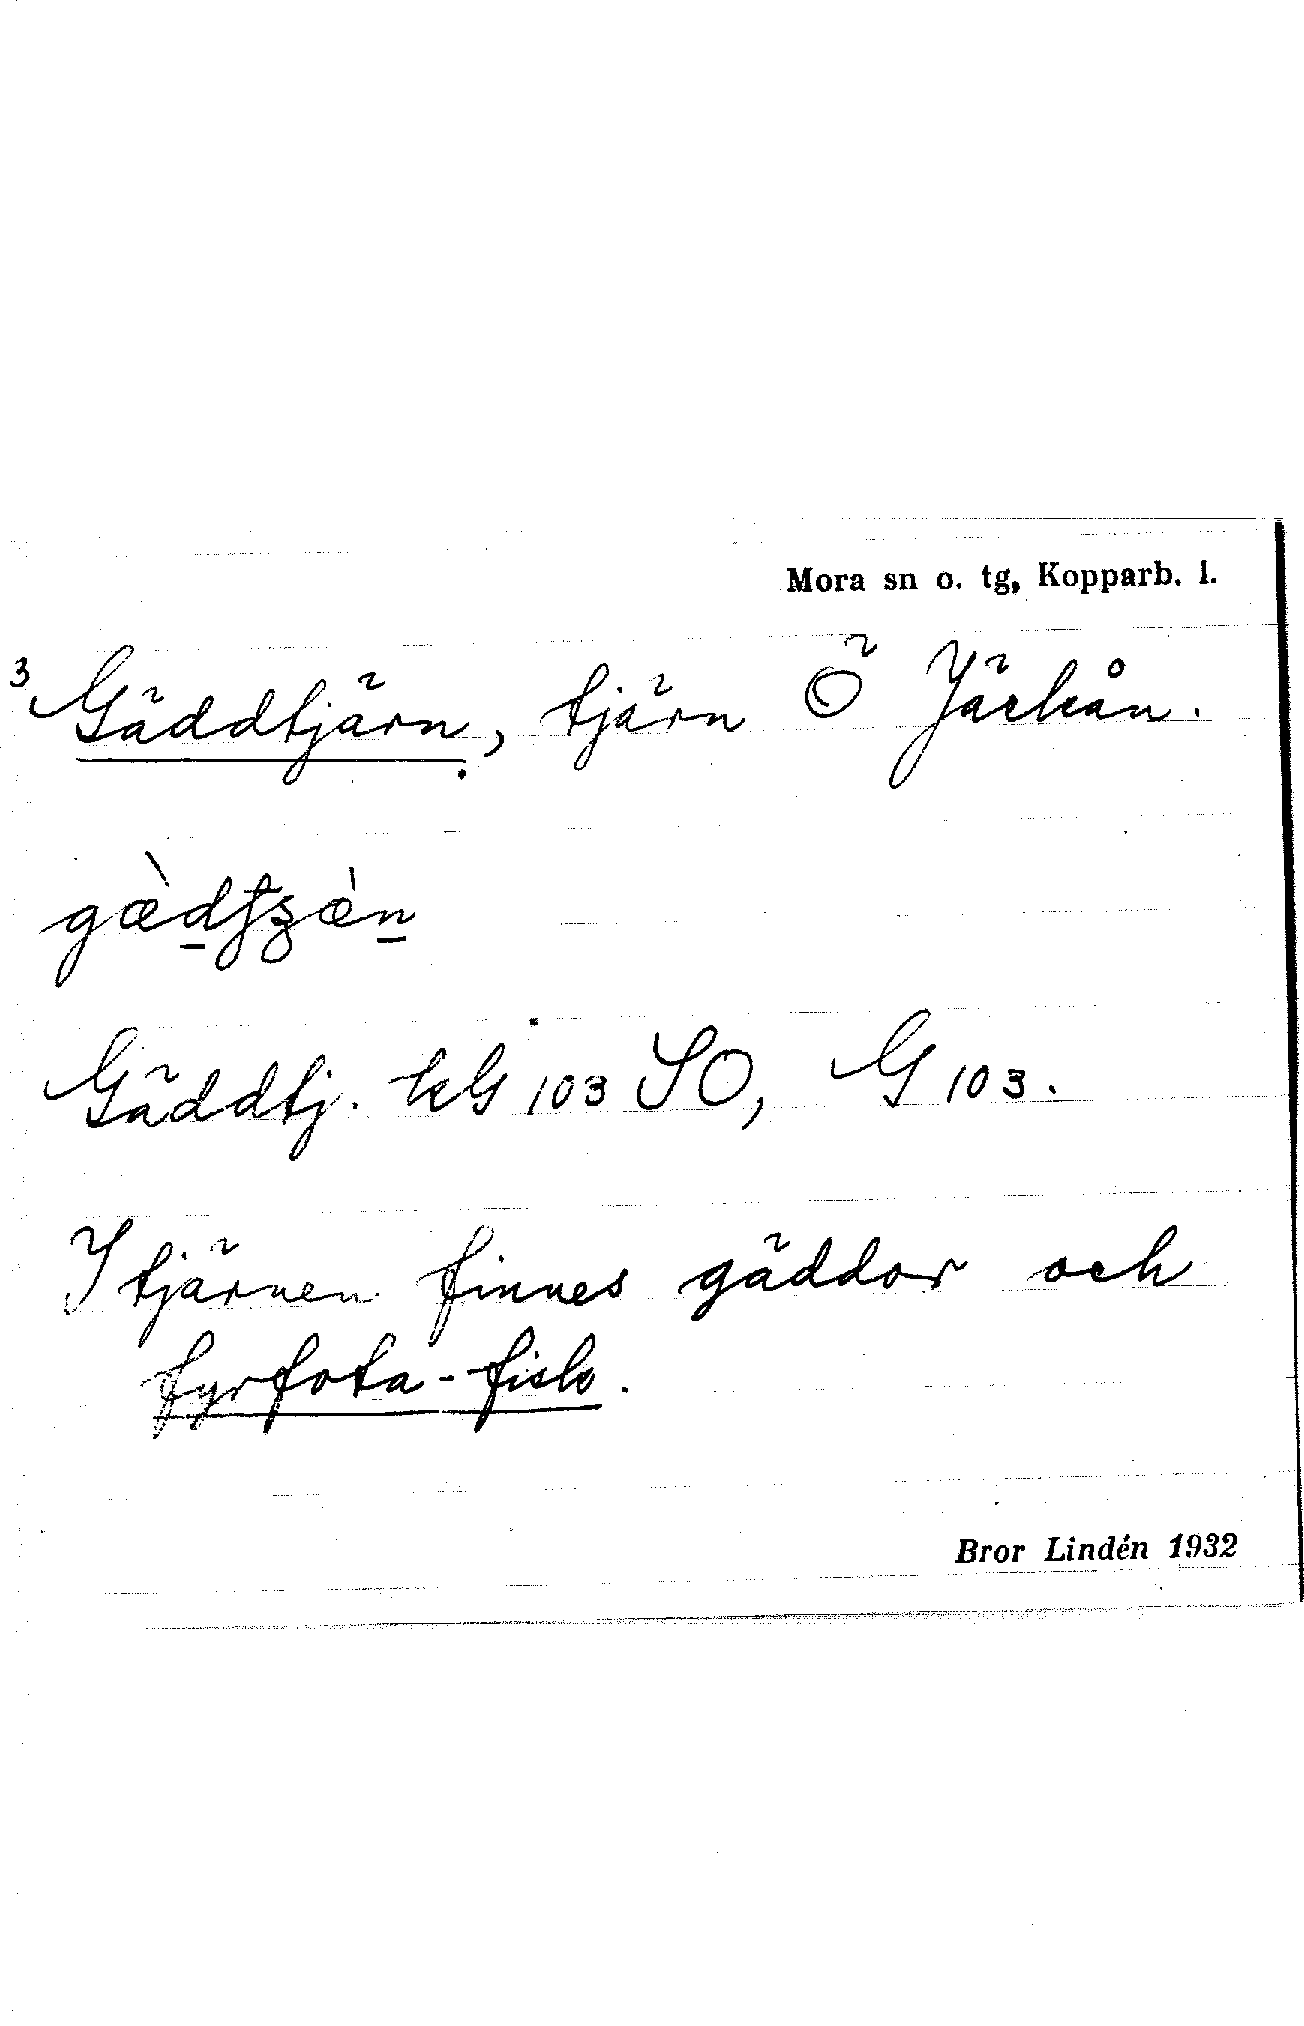 Mora sn o. tg, Kopparb. l.
3 Gäddtjärn, tjärn Ö Jäckån.
Gäddtj. kG 103 SO, G 103.
I tjärnen finnes gäddor och
fyrfota-fisk.
Bror Lindén 1932